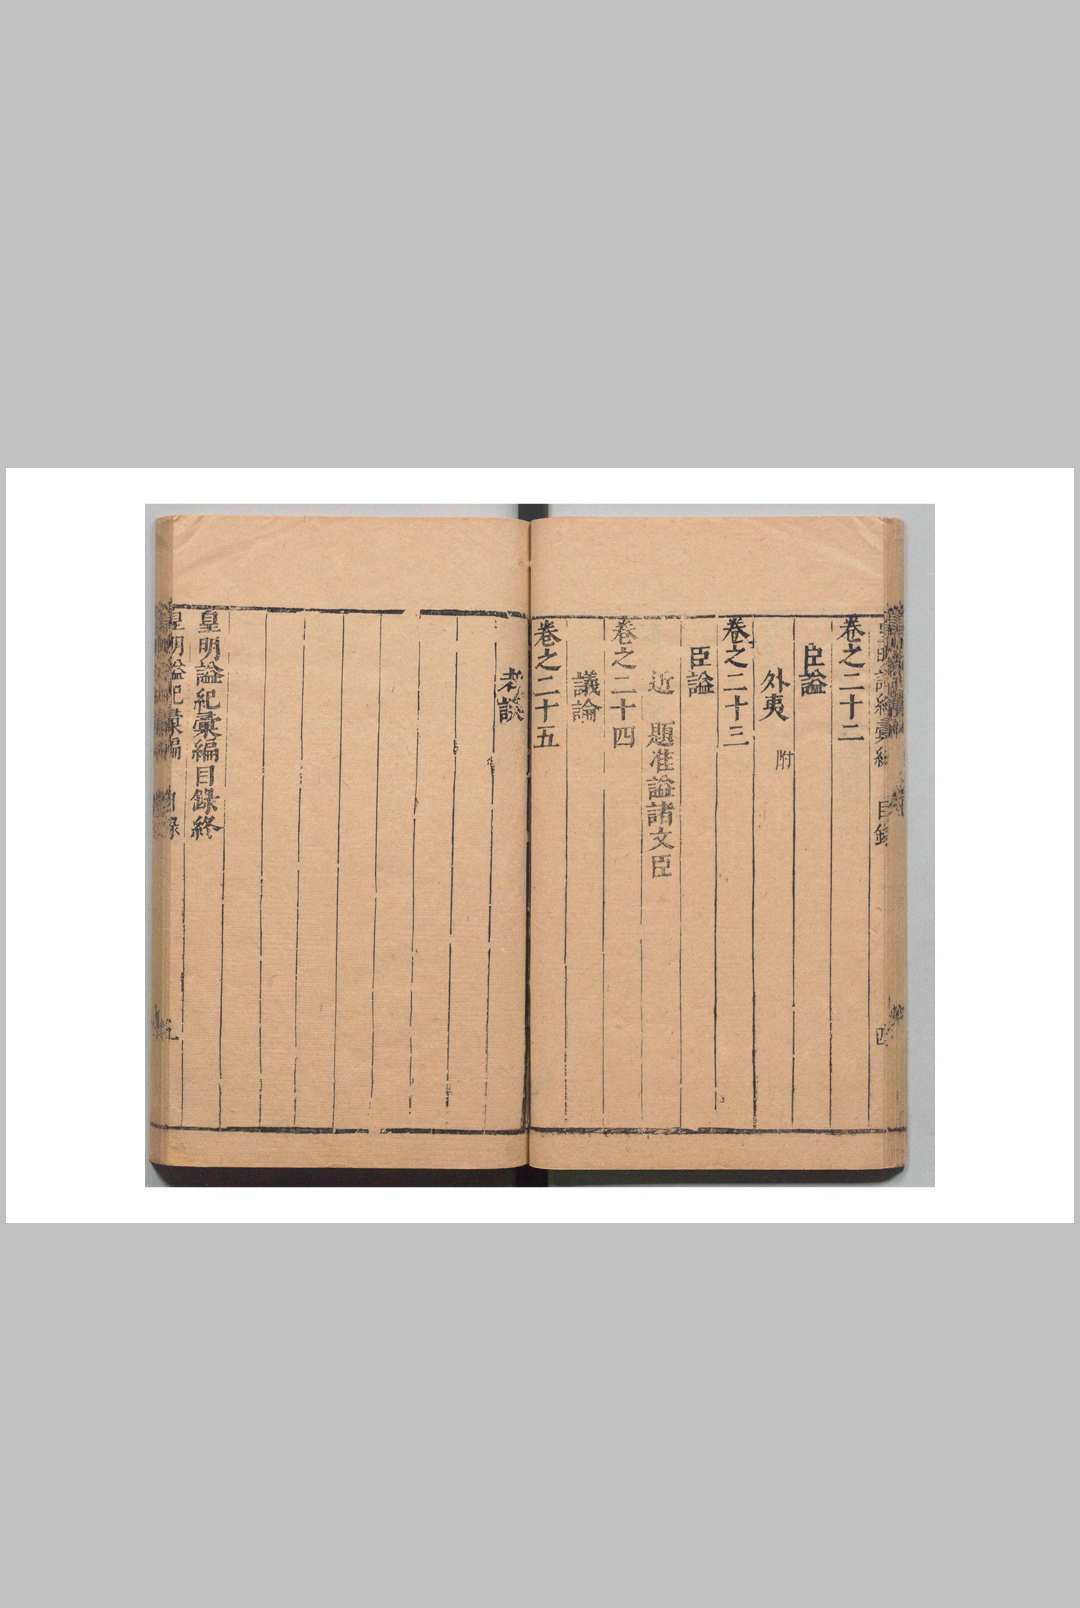 卷之二十二
臣謚
外夷 附
卷之二十三
臣謚
近 題准謚諸文臣
卷之二十四
議論
卷之二十五
考誤
皇明謚紀彙編目錄終
皇明謚紀彙編 目錄